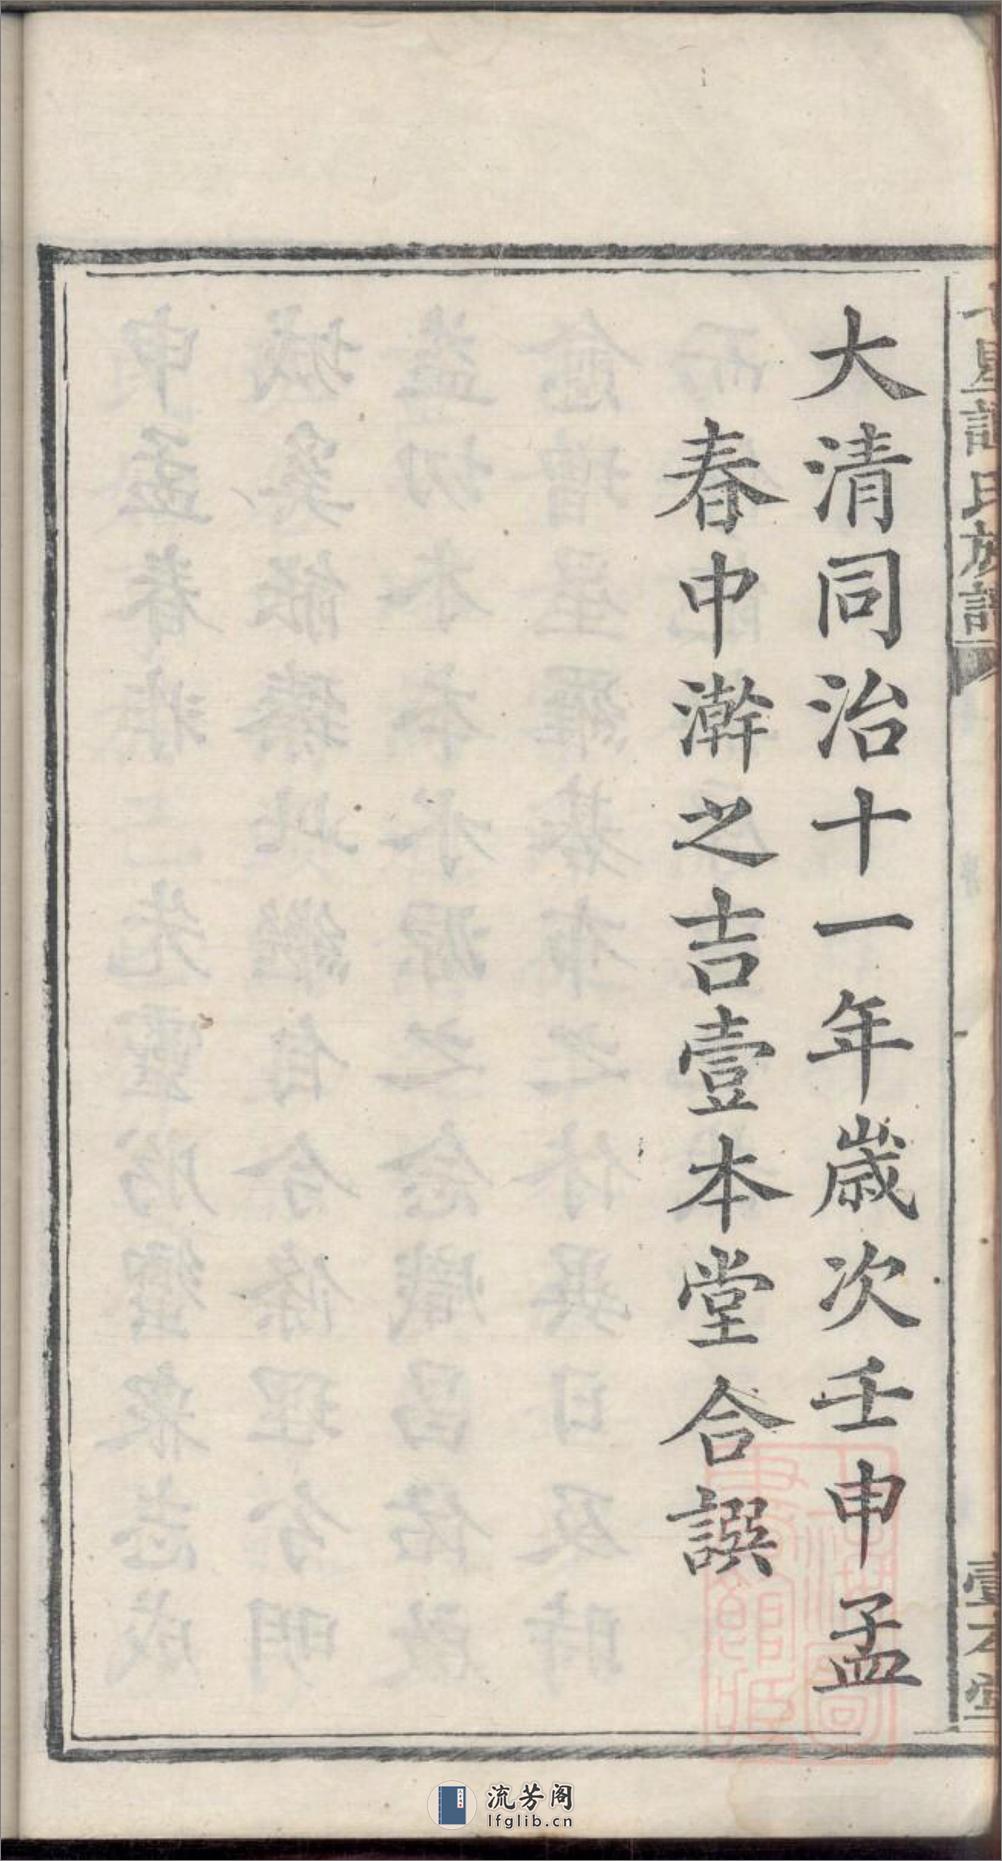 大清同治十一年歲次壬申孟
春中澣之吉壹本堂合譔
氏族譜
壹本堂
流芳阁
lfglib.cn